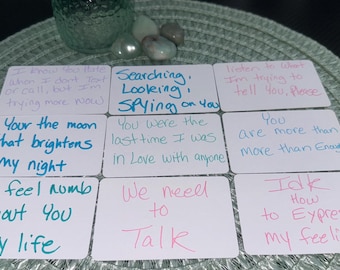 I know you hate
when I don't text
or call, but I'm
trying more now
Searching,
Looking,
SPying on You
listen to What
I'm trying to
tell You, Please
Your the moon
that brightens
my night
You were the
last time I was
in Love with anyone
You
are more than
more than Enough
feel numb
out You
y life
We need
to
Talk
Idk
How
to Express
my feeli